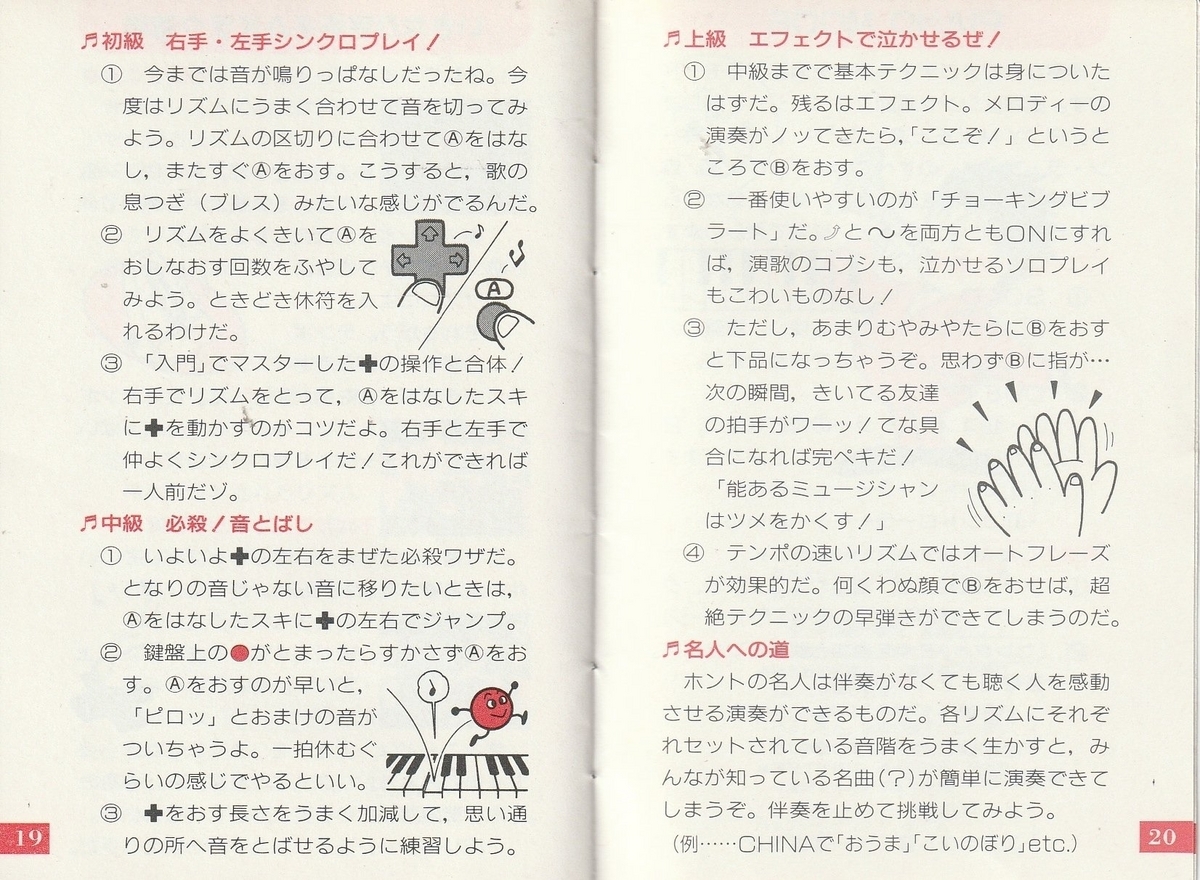 ♬初級　右手・左手シンクロプレイ！
①　今までは音が鳴りっぱなしだったね。今
度はリズムにうまく合わせて音を切ってみ
よう。リズムの区切りに合わせてⒶをはな
し，またすぐⒶをおす。こうすると，歌の
息つぎ（ブレス）みたいな感じがでるんだ。
②　リズムをよくきいてⒶを
おしなおす回数をふやして
みよう。ときどき休符を入
れるわけだ。
A
③　「入門」でマスターした✚の操作と合体！
右手でリズムをとって，Ⓐをはなしたスキ
に✚を動かすのがコツだよ。右手と左手で
仲よくシンクロプレイだ！これができれば
一人前だゾ。
♬中級　必殺！音とばし
①　いよいよ✚の左右をまぜた必殺ワザだ。
となりの音じゃない音に移りたいときは，
Ⓐをはなしたスキに✚の左右でジャンプ。
②　鍵盤上の●がとまったらすかさずⒶをお
す。Ⓐをおすのが早いと，
「ピロッ」とおまけの音が
ついちゃうよ。一拍休むぐ
らいの感じでやるといい。
③　✚をおす長さをうまく加減して，思い通
りの所へ音をとばせるように練習しよう。
19
♬上級　エフェクトで泣かせるぜ！
①　中級までで基本テクニックは身についた
はずだ。残るはエフェクト。メロディーの
演奏がノッてきたら，「ここぞ！」というと
ころでⒷをおす。
②　一番使いやすいのが「チョーキングビブ
ラート」だ。⤴と〜を両方ともONにすれ
ば，演歌のコブシも，泣かせるソロプレイ
もこわいものなし！
③　ただし，あまりむやみやたらにⒷをおす
と下品になっちゃうぞ。思わずⒷに指が…
次の瞬間，きいてる友達
の拍手がワーッ！てな具
合になれば完ペキだ！
「能あるミュージシャン
はツメをかくす！」
④　テンポの速いリズムではオートフレーズ
が効果的だ。何くわぬ顔でⒷをおせば，超
絶テクニックの早弾きができてしまうのだ。
♬名人への道
　ホントの名人は伴奏がなくても聴く人を感動
させる演奏ができるものだ。各リズムにそれぞ
れセットされている音階をうまく生かすと，み
んなが知っている名曲(？)が簡単に演奏できて
しまうぞ。伴奏を止めて挑戦してみよう。
（例……CHINAで「おうま」「こいのぼり」etc.）
20